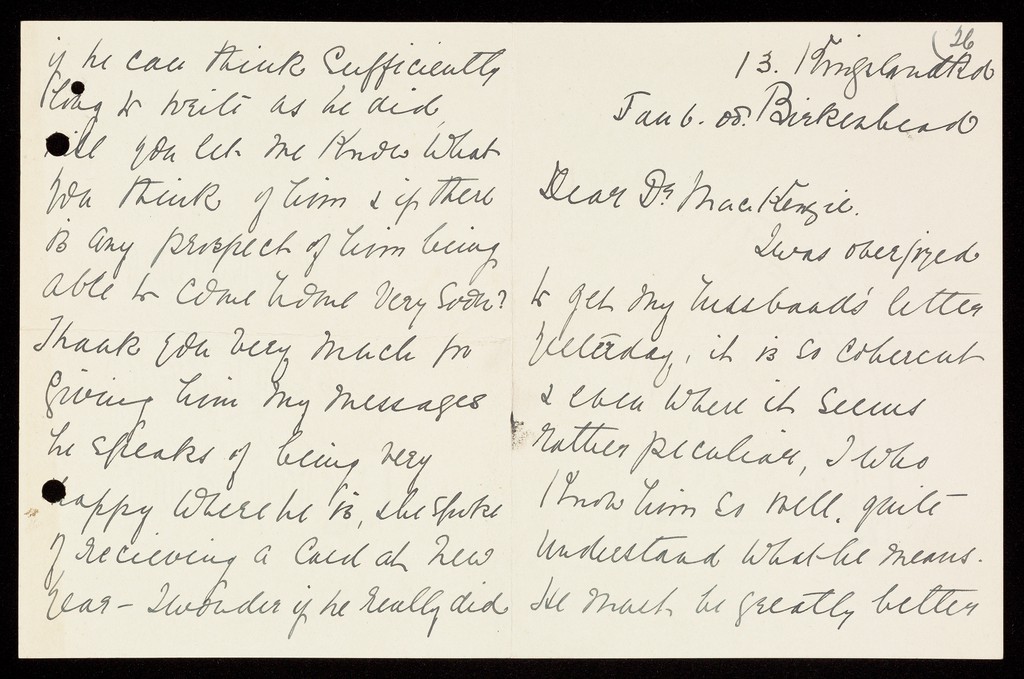 (26
13. Kingsland Rd
Jan 6. 08. Birkenhead
Dear Dr MacKenzie.
I was overjoyed
to get my husband's letter
yesterday, it is so coherent
& even where it seems
rather peculiar, I who
know him so well, quite
understand what he means.
He must be greatly better
if he can think sufficiently
long to write as he did,
will you let me know what
you think of him & if there
is any prospect of him being
able to come home very soon?
Thank you very much for
giving him my messages
he speaks of being very
happy where he is, he spoke
of recieving a card at New
Year - I wonder if he really did